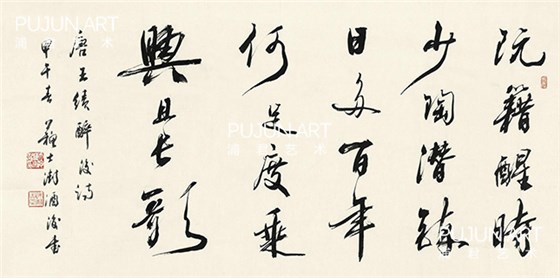 阮籍醒時
少陶潛醉
日多百年
何足度乘
興且長歌
唐王績醉後詩
甲午春蘇士澍酒後書
PUJUN ART
PUJUN ART
PUJUN ART
PUJUN ART
PUJUN ART